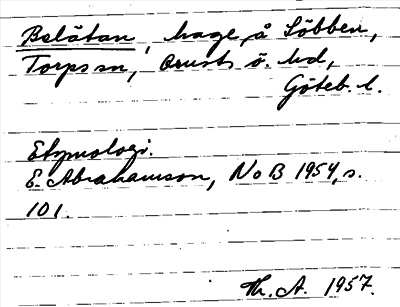 Bolåtan, hage å Löbben,
Torps sn, Orusts ö. hd,
Göteb. l.
Etymologi.
E. Abrahamson, NoB 1954, s.
101.
Th. A. 1957.